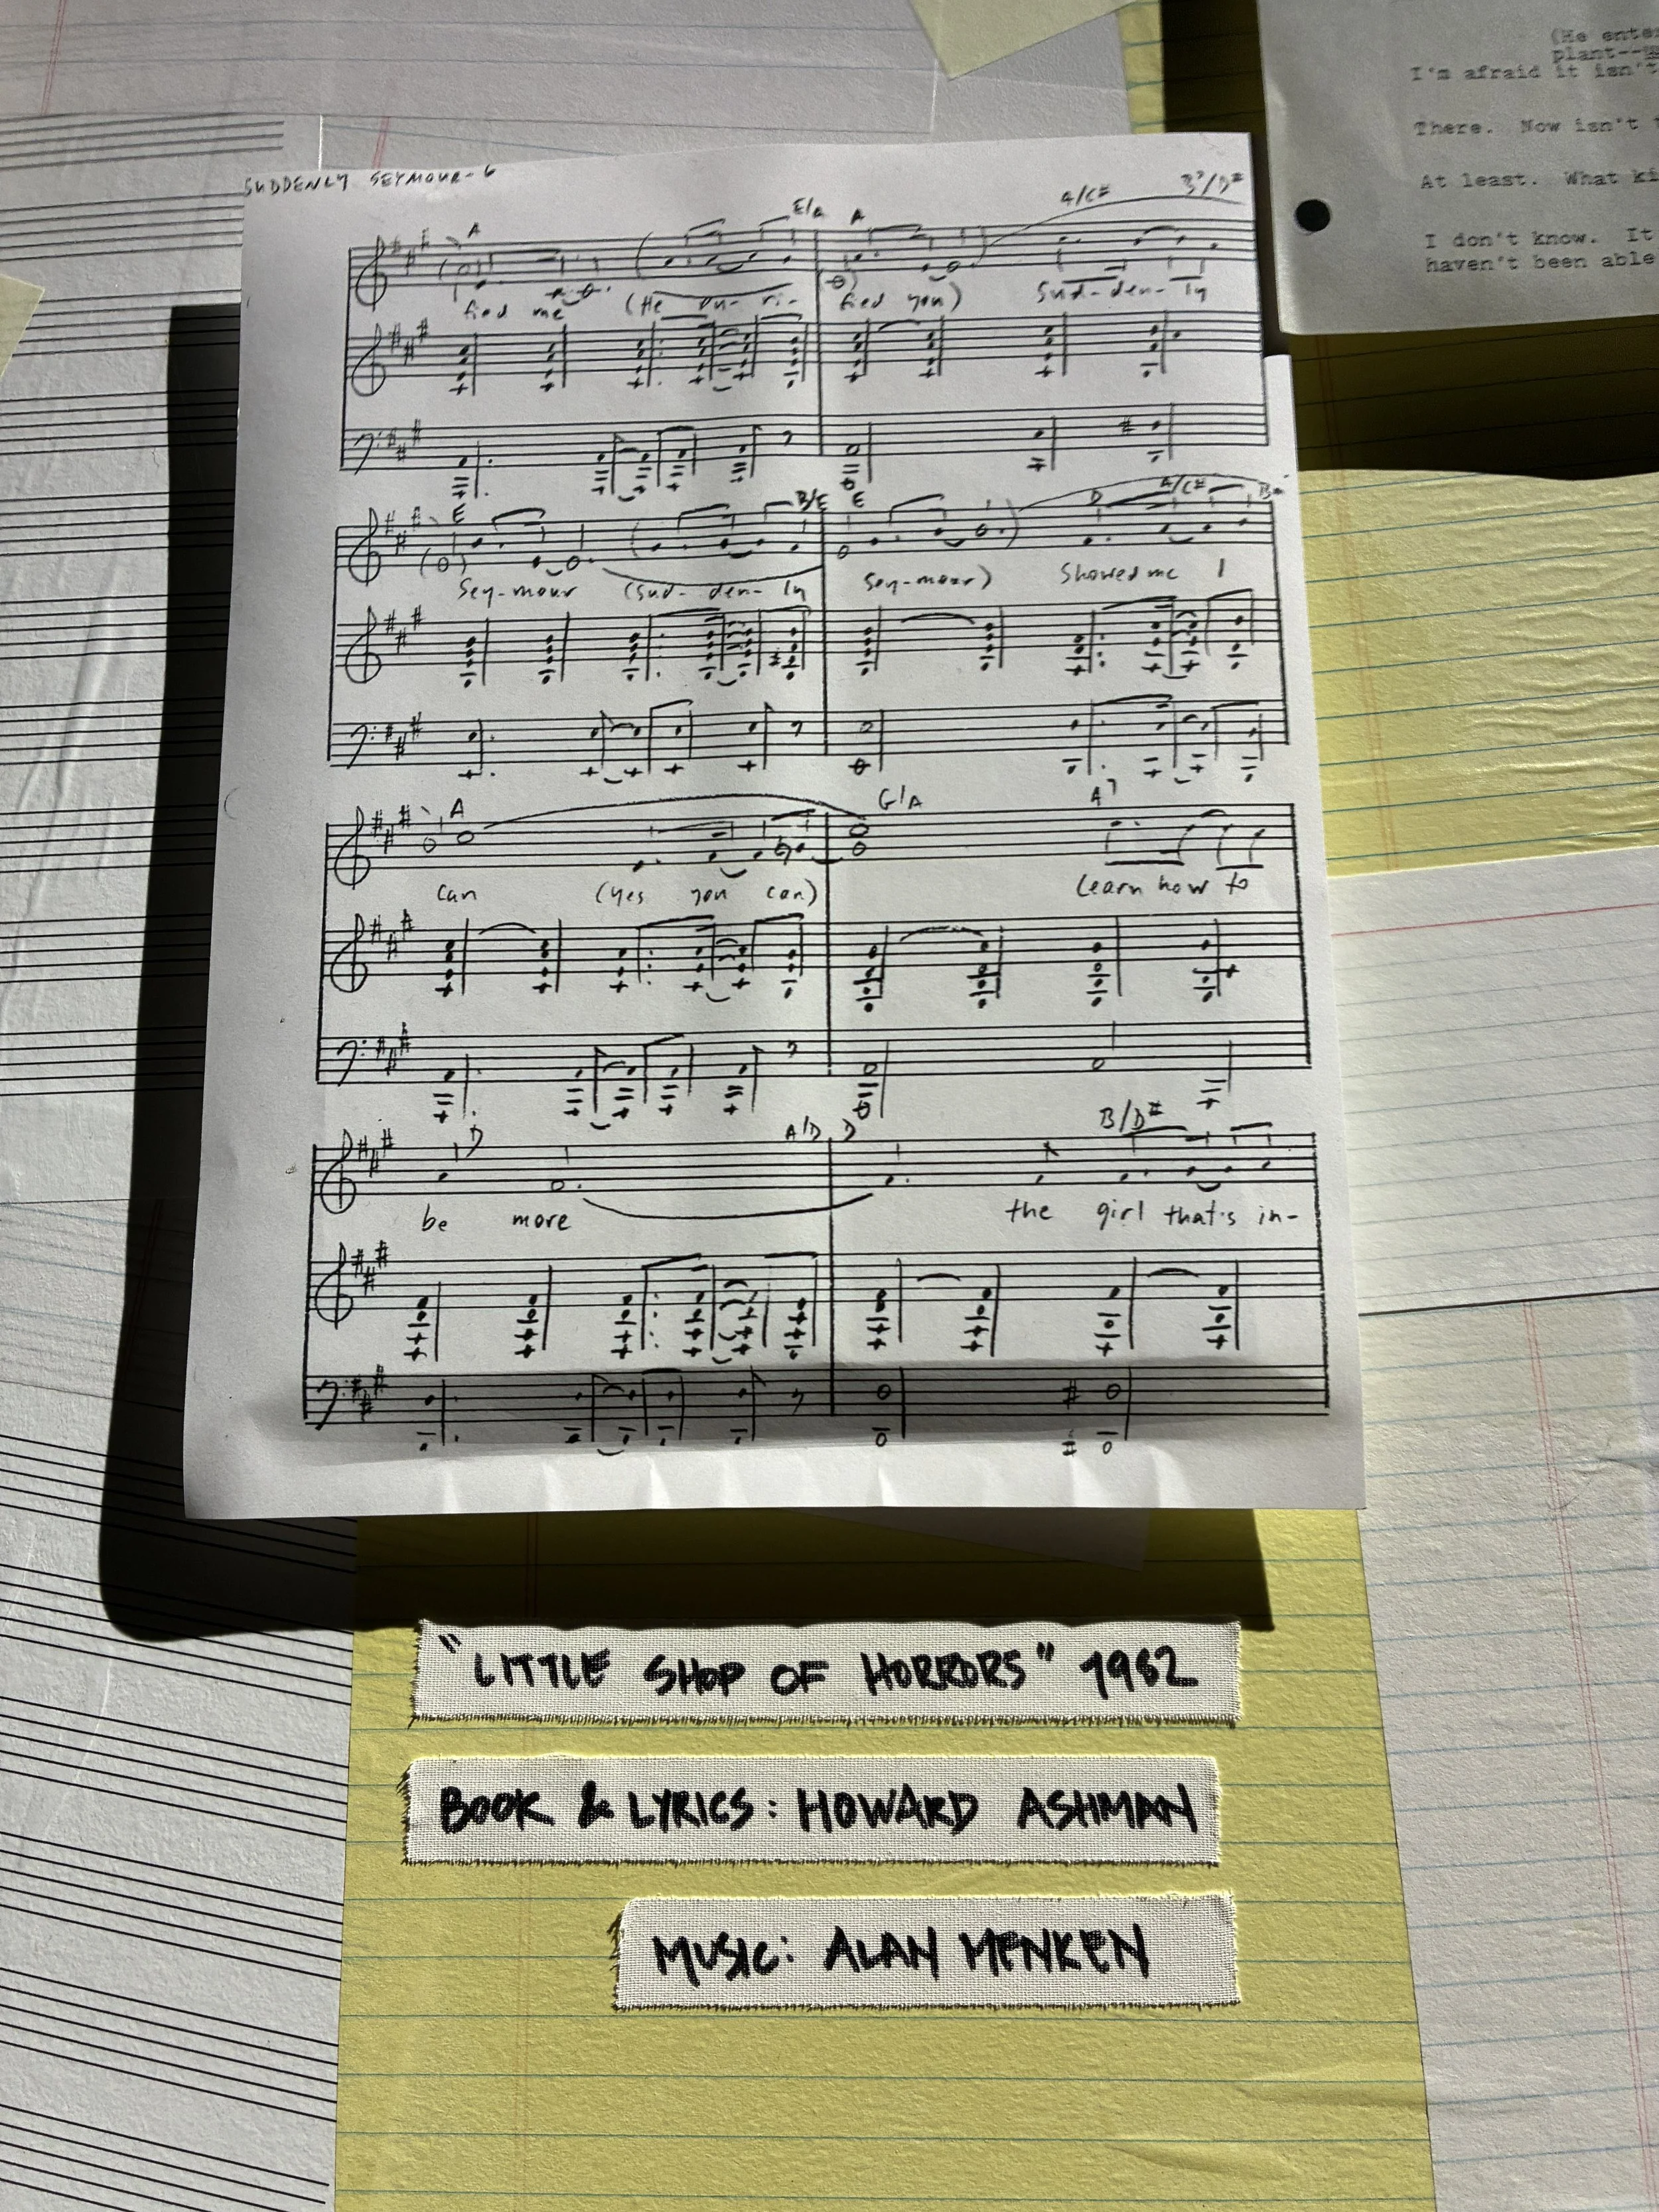 (He ente
plant--
I'm afraid it isn't
There. Now isn't t
At least. What ki
I don't know. It
haven't been able
SUDDENLY SEYMOUR-6
A E/A A A/C# B7/D#
fied me (He pu- ri- fied you) Sud-den-ly
E B/E E D A/C# B
Sey-mour (Sud-den-ly Sey-mour) Showed me I
A G/A A7
can (yes you can) learn how to
D A/D D B/D#
be more the girl that's in-
"LITTLE SHOP OF HORRORS" 1982
BOOK & LYRICS: HOWARD ASHMAN
MUSIC: ALAN MENKEN